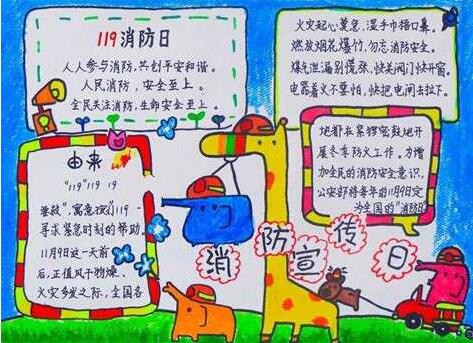 119消防日
人人参与消防，共创平安和谐。
人民消防，安全至上。
全民关注消防，生命安全至上。
火灾起心莫急，湿手巾捂口鼻。
燃放烟花爆竹，勿忘消防安全。
泄漏别慌张，快关阀门快开窗。
电器着火不要怕，快把电闸去拉下。
由来
"119"119 19
救"，寓意我们119
寻求紧急时刻的帮助。
11月9日这一天前
后，正值风干物燥、
火灾多发之际，全国各
地都在紧锣密鼓地开
展冬季防火工作。为增
加全民的消防安全意识，
公安部将每年的11月9日定
为全国的"消防日
消防宣传日